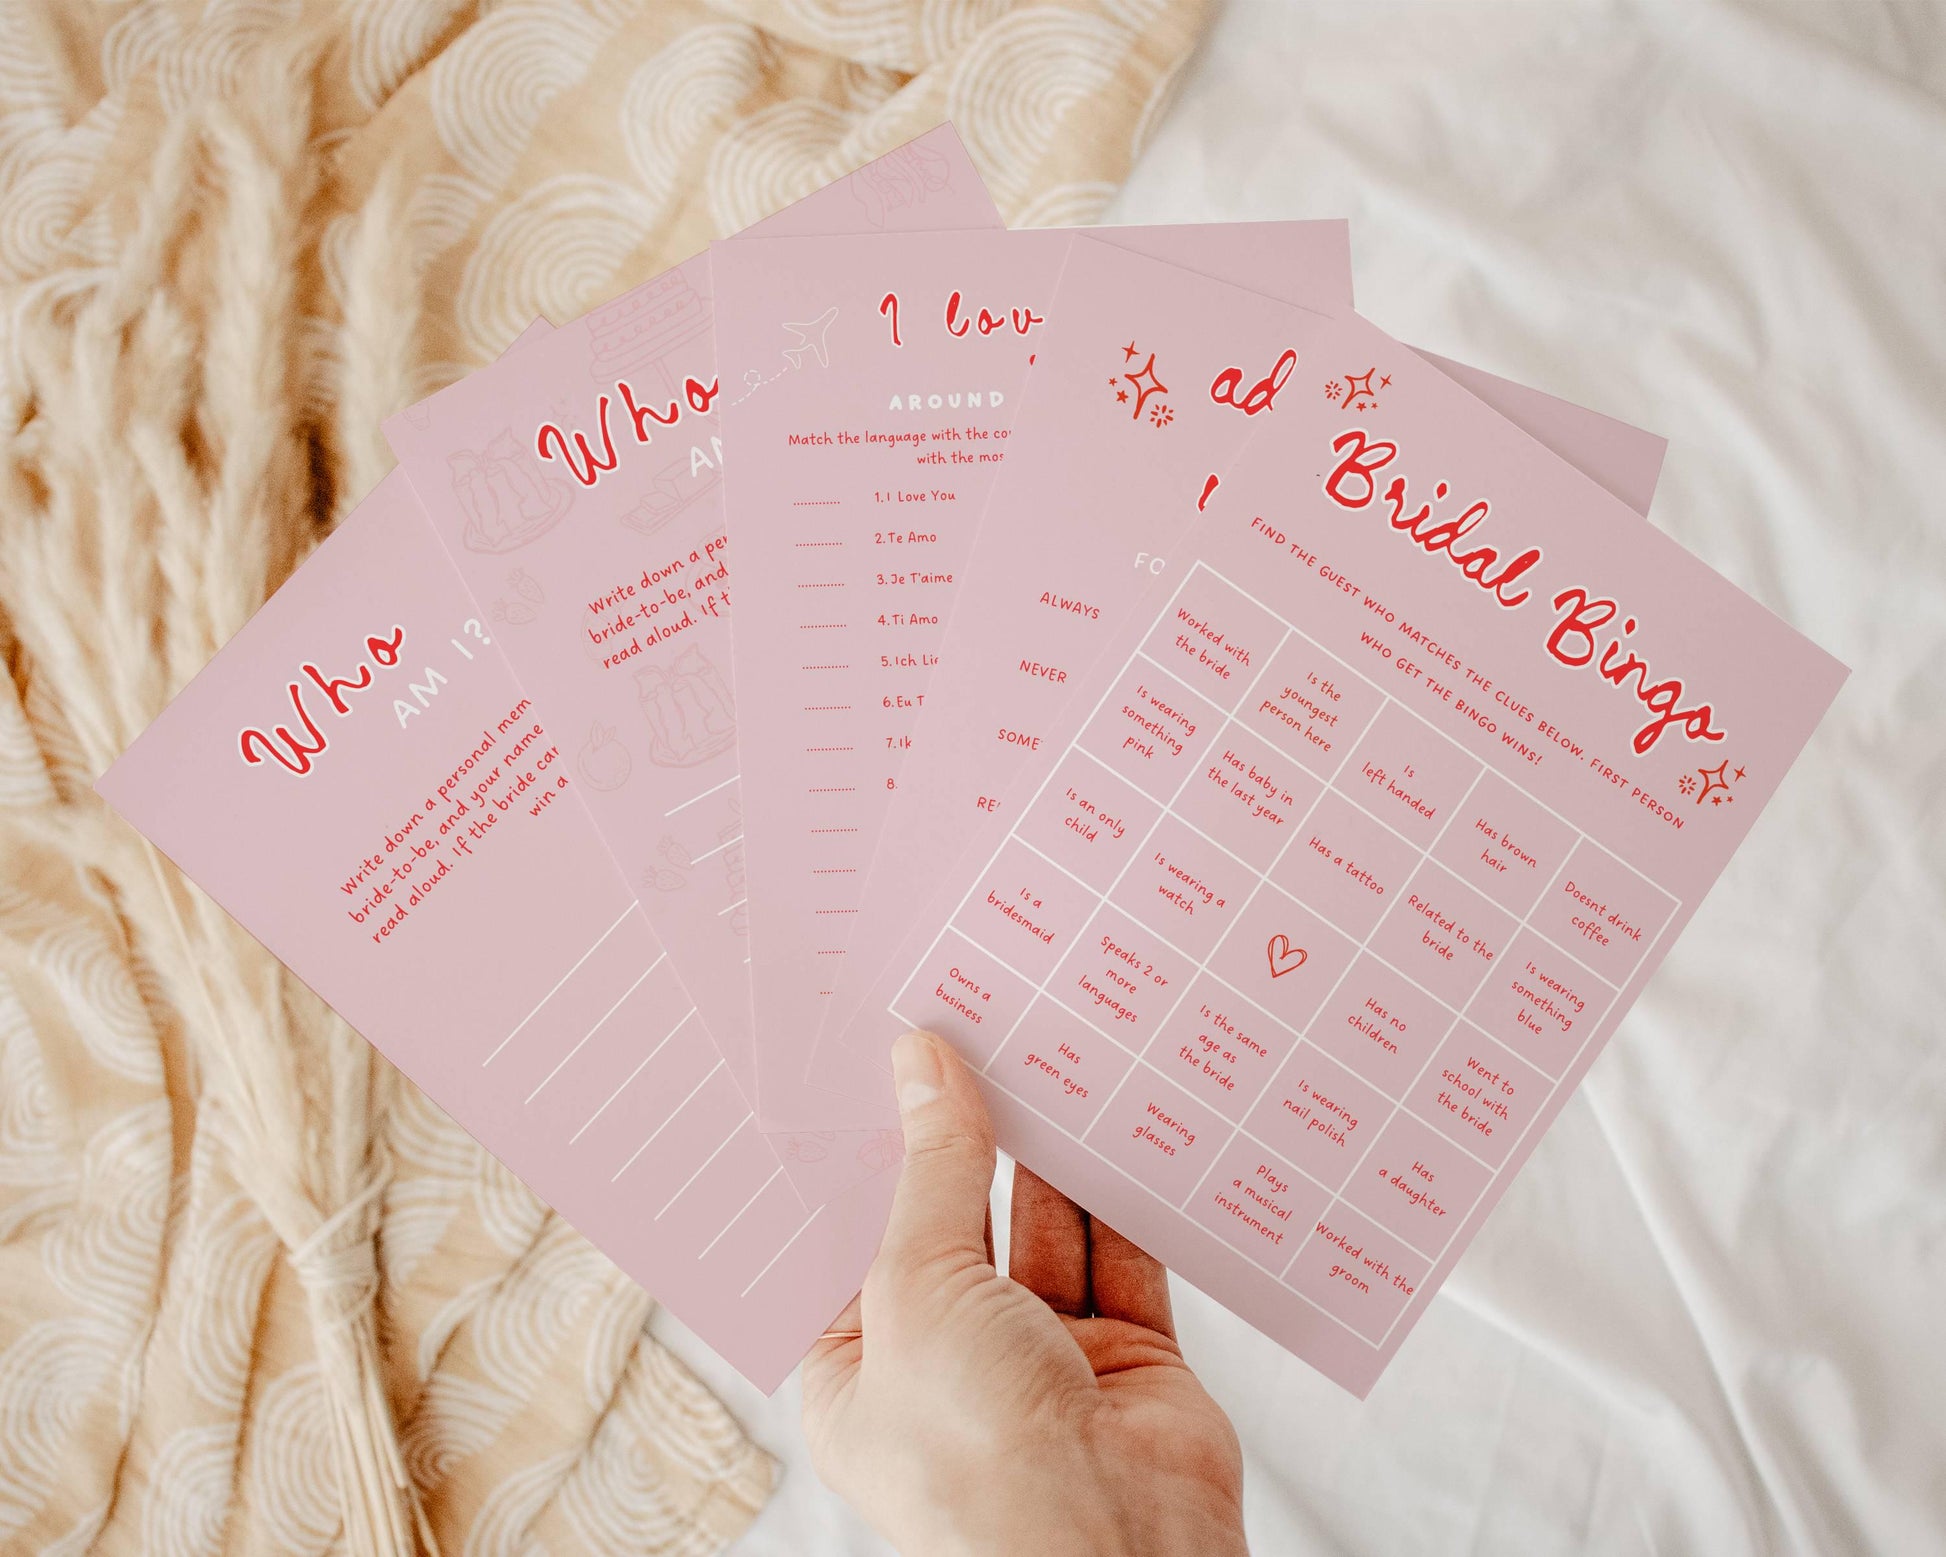 Who
AM I?
Write down a personal mem
bride-to-be, and your name
read aloud. If the bride can
win a
Who
Write down a per
bride-to-be, and
read aloud. If
I lov
AROUND
Match the language with the
with the mos
1. I Love You
2. Te Amo
3. Je T'aime
4. Ti Amo
5. Ich Lie
6. Eu T
7. Ik
8.
ad
FO
ALWAYS
NEVER
SOME
RE
Bridal Bingo
FIND THE GUEST WHO MATCHES THE CLUES BELOW. FIRST PERSON
WHO GET THE BINGO WINS!
Worked with
the bride
Is the
youngest
person here
Is
left handed
Has brown
hair
Doesnt drink
coffee
Is wearing
something
pink
Has baby in
the last year
Has a tattoo
Related to the
bride
Is wearing
something
blue
Is an only
child
Is wearing a
watch
Has no
children
Went to
school with
the bride
Is a
bridesmaid
Speaks 2 or
more
languages
Is the same
age as
the bride
Is wearing
nail polish
Has
a daughter
Owns a
business
Has
green eyes
Wearing
glasses
Plays
a musical
instrument
Worked with the
groom